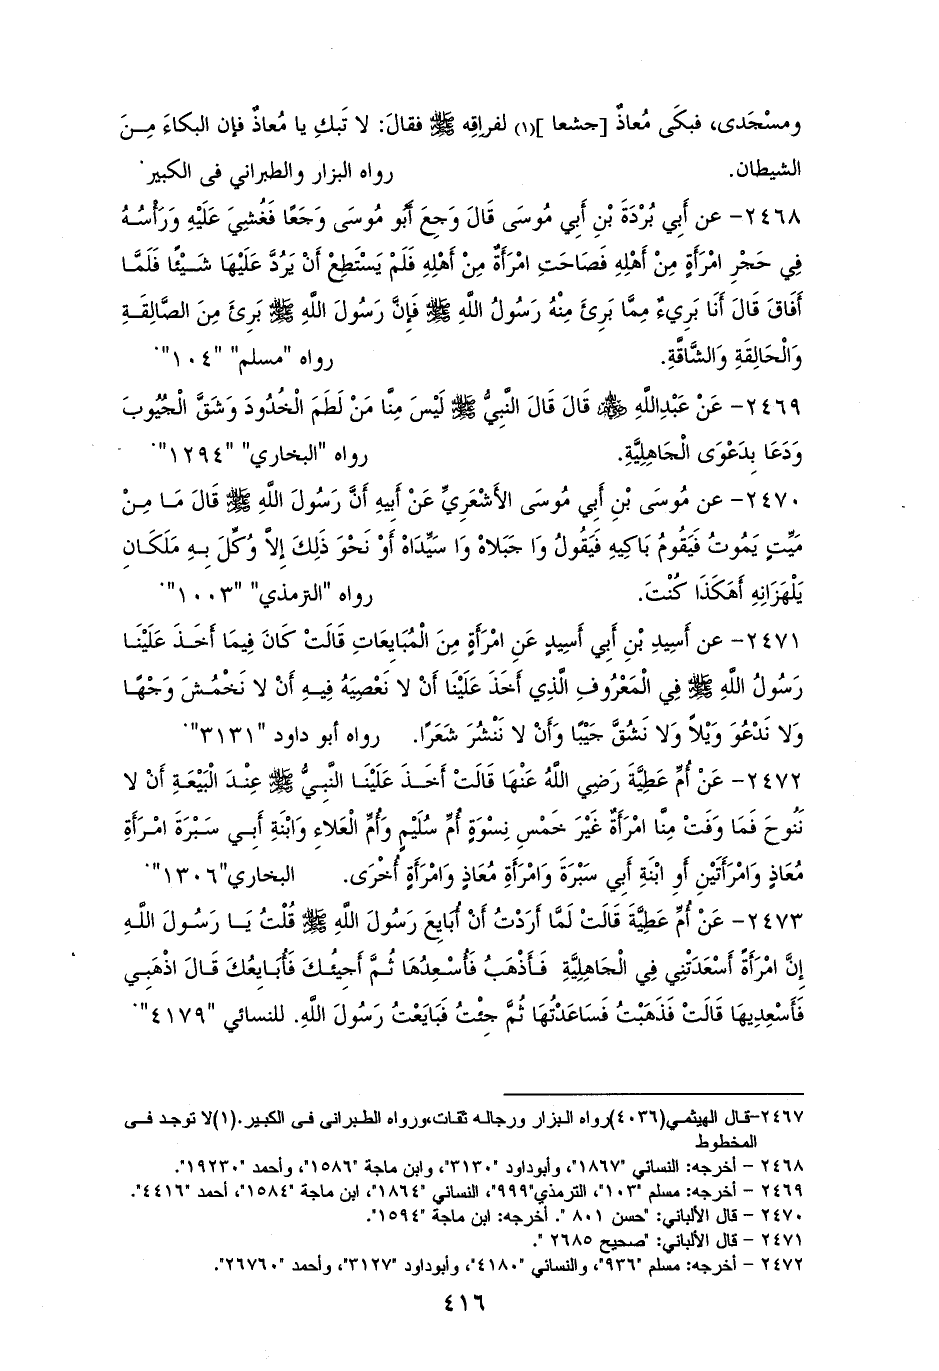 ومسْجَدى، فبكَى مُعاذٌ [جشعا ](١) لفراقِه ﷺ فقالَ: لا تَبكِ يا مُعاذٌ فإن البكاءَ مِـنَ
الشيطان. رواه البزار والطبراني فى الكبير.
٢٤٦٨- عن أَبِي بُرْدَةَ بْنِ أَبِي مُوسَى قَالَ وَجِعَ أَبُو مُوسَى وَجَعًا فَغُشِيَ عَلَيْهِ وَرَأْسُـهُ
فِي حَجْرِ امْرَأَةٍ مِنْ أَهْلِهِ فَصَاحَتِ امْرَأَةٌ مِنْ أَهْلِهِ فَلَمْ يَسْتَطِعْ أَنْ يَرُدَّ عَلَيْهَا شَـيْئًا فَلَمَّـا
أَفَاقَ قَالَ أَنَا بَرِيءٌ مِمَّا بَرِئَ مِنْهُ رَسُولُ اللَّهِ ﷺ فَإِنَّ رَسُولَ اللَّهِ ﷺ بَرِئَ مِنَ الصَّالِقَـةِ
وَالْحَالِقَةِ وَالشَّاقَّةِ. رواه "مسلم" "١٠٤".
٢٤٦٩- عَنْ عَبْدِاللَّهِ رضي الله عنه قَالَ قَالَ النَّبِيُّ ﷺ لَيْسَ مِنَّا مَنْ لَطَمَ الْخُدُودَ وَشَقَّ الْجُيُوبَ
وَدَعَا بِدَعْوَى الْجَاهِلِيَّةِ. رواه "البخاري" "١٢٩٤".
٢٤٧٠- عن مُوسَى بْنِ أَبِي مُوسَى الأَشْعَرِيِّ عَنْ أَبِيهِ أَنَّ رَسُولَ اللَّهِ ﷺ قَالَ مَـا مِـنْ
مَيِّتٍ يَمُوتُ فَيَقُومُ بَاكِيهِ فَيَقُولُ وَا جَبَلاهْ وَا سَيِّدَاهْ أَوْ نَحْوَ ذَلِكَ إِلاَّ وُكِّلَ بِـهِ مَلَكَـانِ
يَلْهَزَانِهِ أَهَكَذَا كُنْتَ. رواه "الترمذي" "١٠٠٣".
٢٤٧١- عن أَسِيدِ بْنِ أَبِي أَسِيدٍ عَنِ امْرَأَةٍ مِنَ الْمُبَايِعَاتِ قَالَتْ كَانَ فِيمَا أَخَـذَ عَلَيْنَـا
رَسُولُ اللَّهِ ﷺ فِي الْمَعْرُوفِ الَّذِي أَخَذَ عَلَيْنَا أَنْ لا نَعْصِيَهُ فِيـهِ أَنْ لا نَخْمُـشَ وَجْهًـا
وَلا نَدْعُوَ وَيْلاً وَلا نَشُقَّ جَيْبًا وَأَنْ لا نَنْشُرَ شَعَرًا. رواه أبو داود "٣١٣١".
٢٤٧٢- عَنْ أُمِّ عَطِيَّةَ رَضِي اللَّهُ عَنْهَا قَالَتْ أَخَـذَ عَلَيْنَـا النَّبِـيُّ ﷺ عِنْـدَ الْبَيْعَـةِ أَنْ لا
نَنُوحَ فَمَا وَفَتْ مِنَّا امْرَأَةٌ غَيْرَ خَمْسِ نِسْوَةٍ أُمِّ سُلَيْمٍ وَأُمِّ الْعَلاءِ وَابْنَةِ أَبِـي سَـبْرَةَ امْـرَأَةِ
مُعَاذٍ وَامْرَأَتَيْنِ أَوِ ابْنَةِ أَبِي سَبْرَةَ وَامْرَأَةِ مُعَاذٍ وَامْرَأَةٍ أُخْرَى. البخاري"١٣٠٦".
٢٤٧٣- عَنْ أُمِّ عَطِيَّةَ قَالَتْ لَمَّا أَرَدْتُ أَنْ أُبَايِعَ رَسُولَ اللَّهِ ﷺ قُلْتُ يَـا رَسُـولَ اللَّـهِ
إِنَّ امْرَأَةً أَسْعَدَتْنِي فِي الْجَاهِلِيَّةِ فَـأَذْهَبُ فَأُسْـعِدُهَا ثُـمَّ أَجِيئُـكَ فَأُبَـايِعُكَ قَـالَ اذْهَبِـي
فَأَسْعِدِيهَا قَالَتْ فَذَهَبْتُ فَسَاعَدْتُهَا ثُمَّ جِئْتُ فَبَايَعْتُ رَسُولَ اللَّهِ. للنسائي "٤١٧٩".
٢٤٦٧-قـال الهيثمـي(٤٠٣٦)رواه الـبزار ورجالـه ثقـات،ورواه الطبرانى فـى الكبير.(١)لا توجـد فـى
المخطوط
٢٤٦٨ - أخرجه: النسائي "١٨٦٧"، وأبوداود "٣١٣٠"، وابن ماجة "١٥٨٦"، وأحمد "١٩٢٣٠".
٢٤٦٩ - أخرجه: مسلم "١٠٣"، الترمذي"٩٩٩"، النسائي "١٨٦٤"، ابن ماجة "١٥٨٤"، أحمد "٤٤١٦".
٢٤٧٠ - قال الألباني: "حسن ٨٠١ ". أخرجه: ابن ماجة "١٥٩٤".
٢٤٧١ - قال الألباني: "صحيح ٢٦٨٥ ".
٢٤٧٢ - أخرجه: مسلم "٩٣٦"، والنسائي "٤١٨٠"، وأبوداود "٣١٢٧"، وأحمد "٢٦٧٦٠".
٤١٦